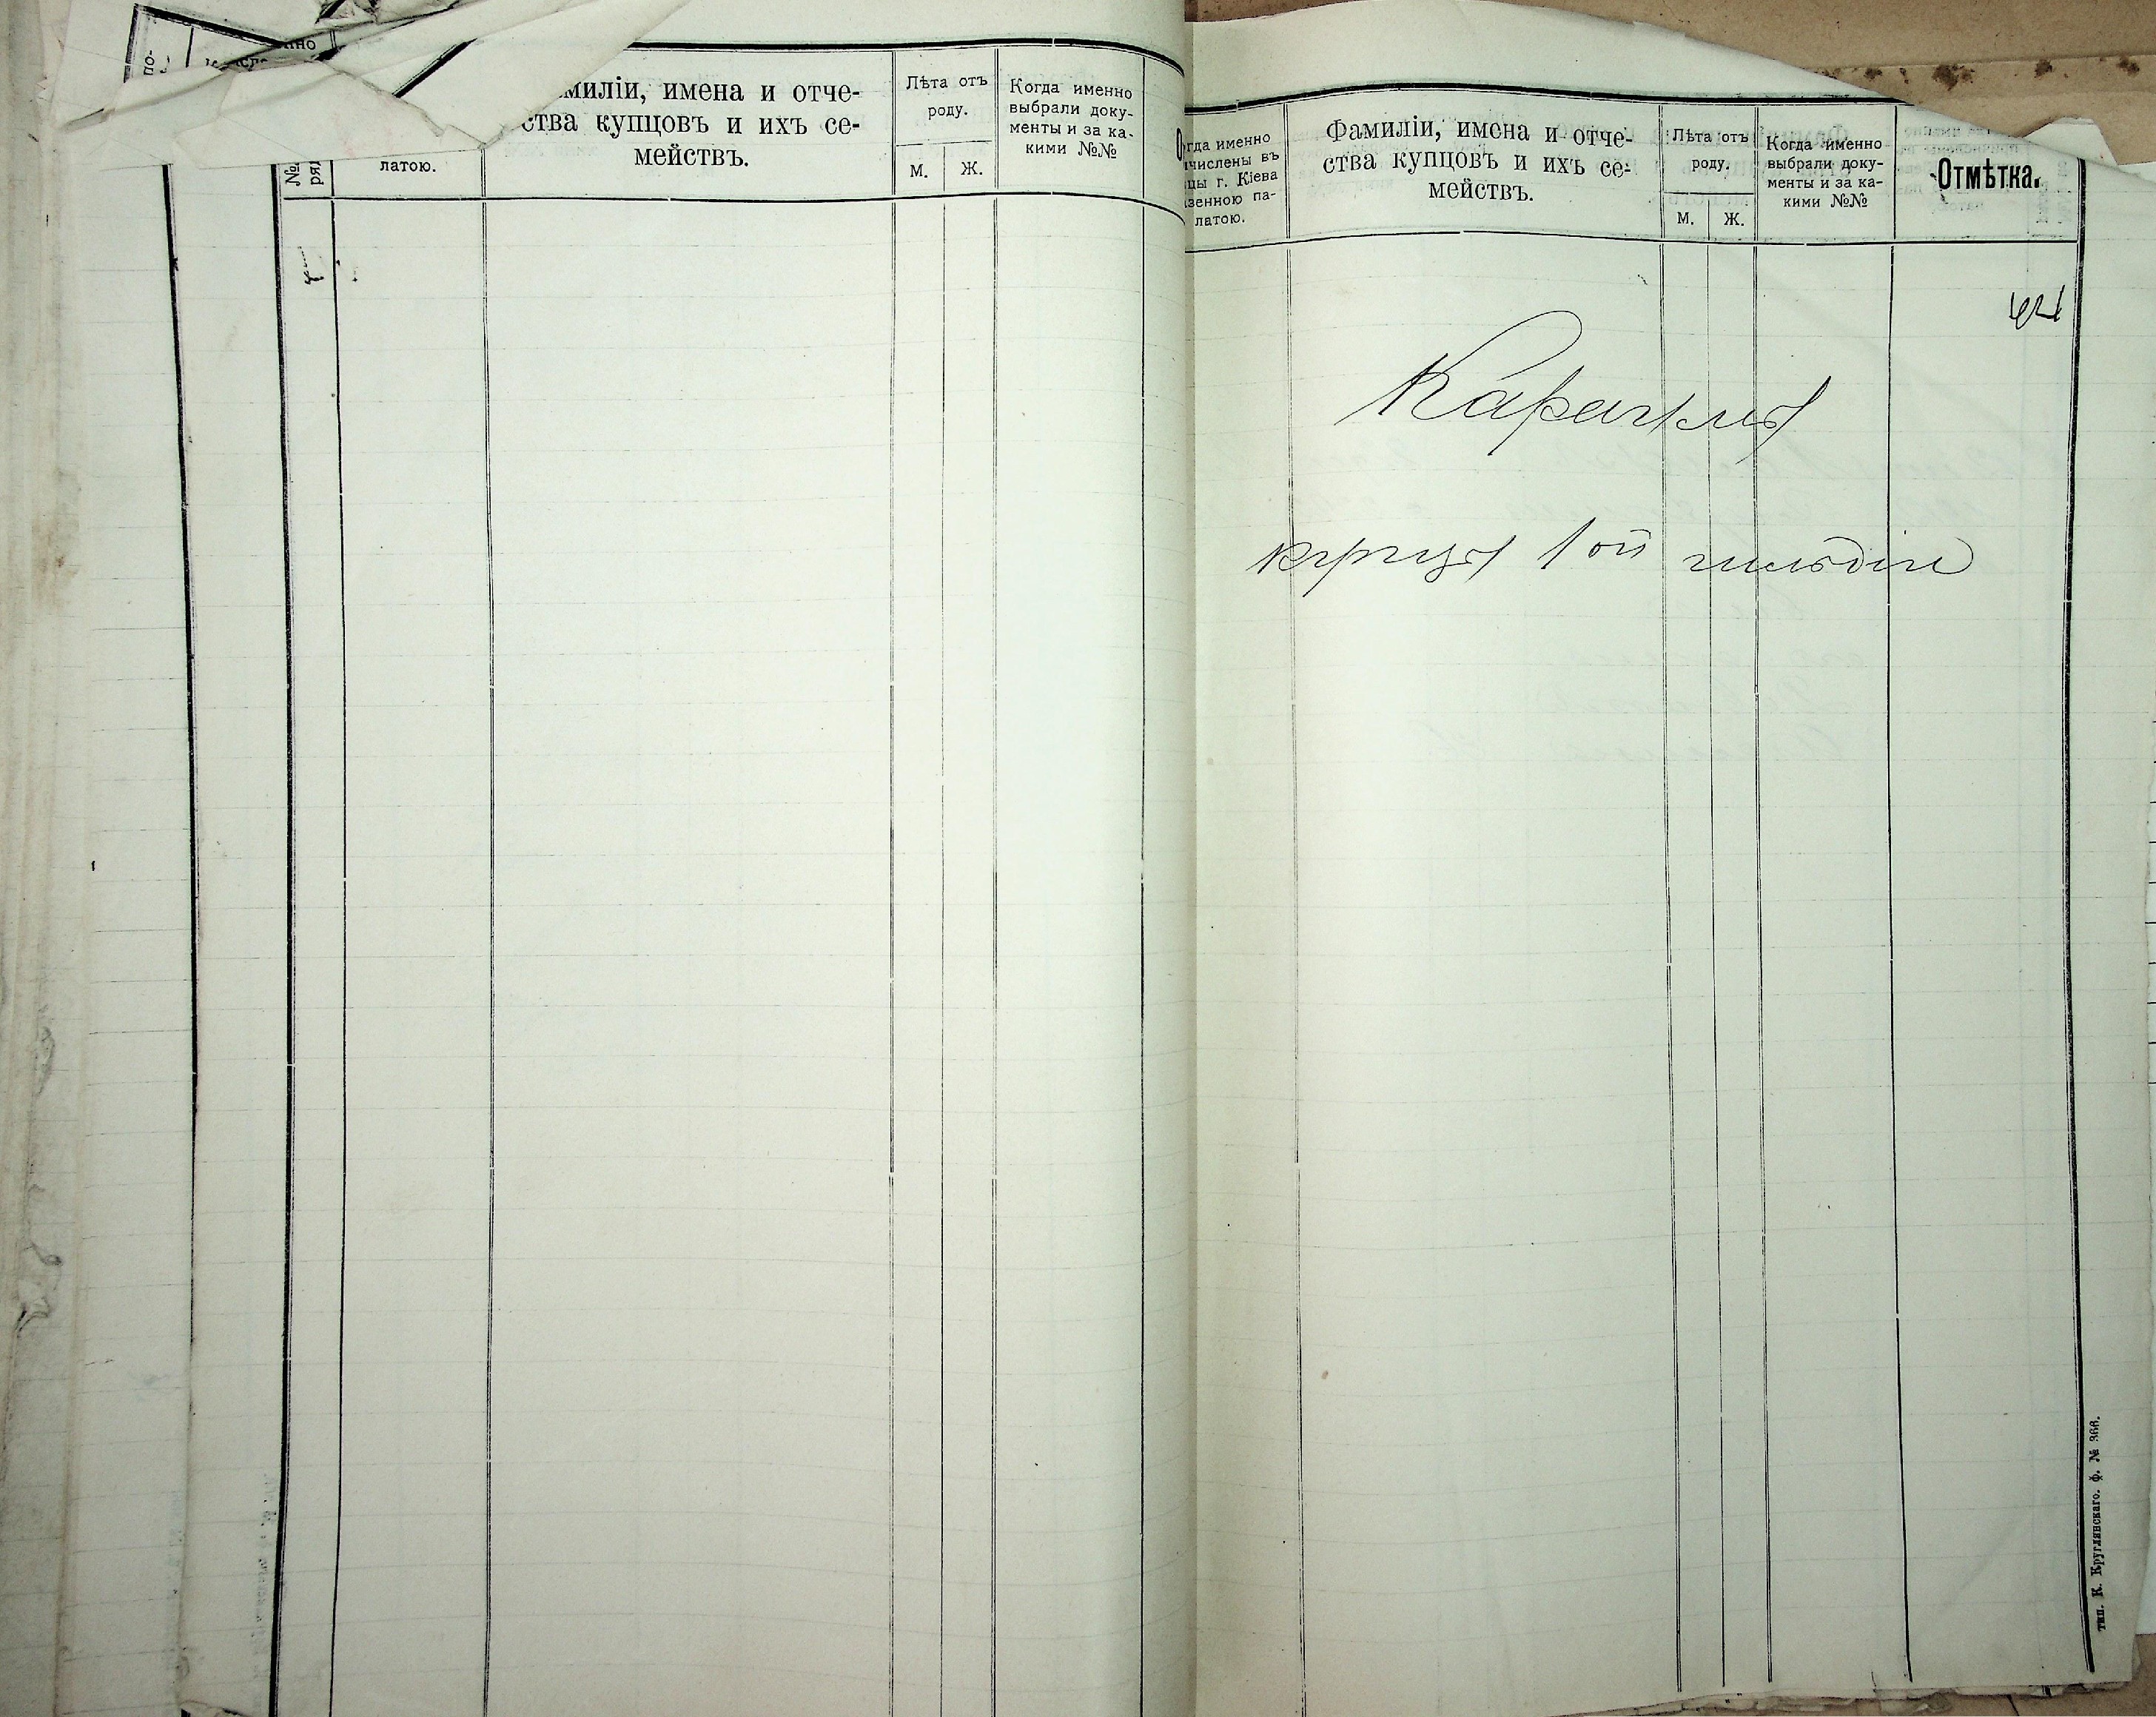 по-
нно
милiи, имена и отче-
ства купцовъ и ихъ се-
мействъ.
Лѣта отъ
роду.
М.
Ж.
Когда именно
выбрали доку-
менты и за ка-
кими №№
№
ряд
латою.
гда именно
числены въ
цы г. Кiева
зенною па-
латою.
Фамилiи, имена и отче-
ства купцовъ и ихъ се-
мействъ.
Лѣта отъ
роду.
М.
Ж.
Когда именно
выбрали доку-
менты и за ка-
кими №№
Отмѣтка.
Караимы
купцы 1ой гильдiи
тип. К. Круглянскаго. ф. № 366.